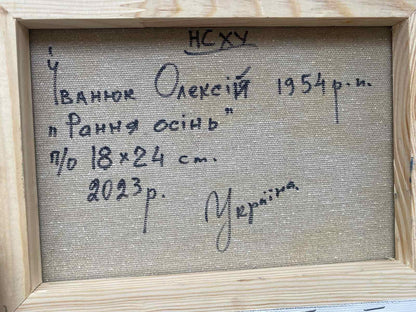 НСХУ
Іванюк Олексій 1954 р.н.
"Рання осінь"
п/о 18×24 см.
2023 р.
Україна